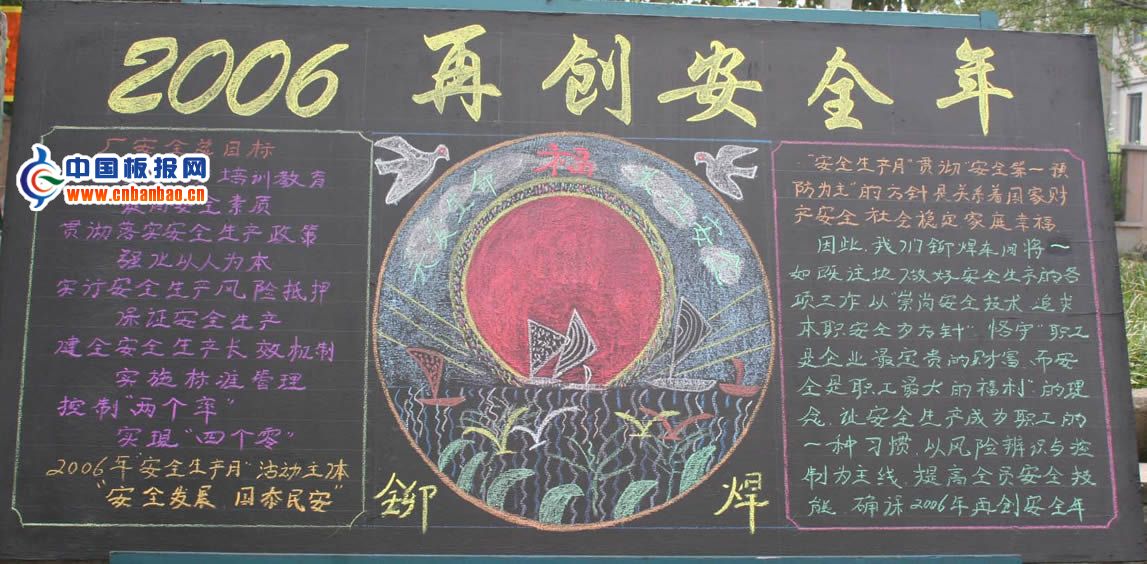 2006 再创安全年
中国板报网
www.cnbanbao.cn
厂安全总目标
培训教育
提高安全素质
贯彻落实安全生产政策
强化以人为本
实行安全生产风险抵押
保证安全生产
建全安全生产长效机制
实施标准管理
控制"两个率"
实现"四个零"
2006年"安全生产月"活动主体
"安全发展、国泰民安"
福
铆 焊
"安全生产月"贯彻"安全第一预
防为主"的方针是关系着国家财
产安全 社会稳定家庭幸福
因此,我们铆焊车间将一
如既往地做好安全生产的各
项工作 以"崇尚安全技术 追求
本职安全为方针" 恪守"职工
是企业最宝贵的财富、而安
全是职工最大的福利"的理
念、让安全生产成为职工的
一种习惯、以风险辨识与控
制为主线、提高全员安全技
能 确保2006年再创安全年